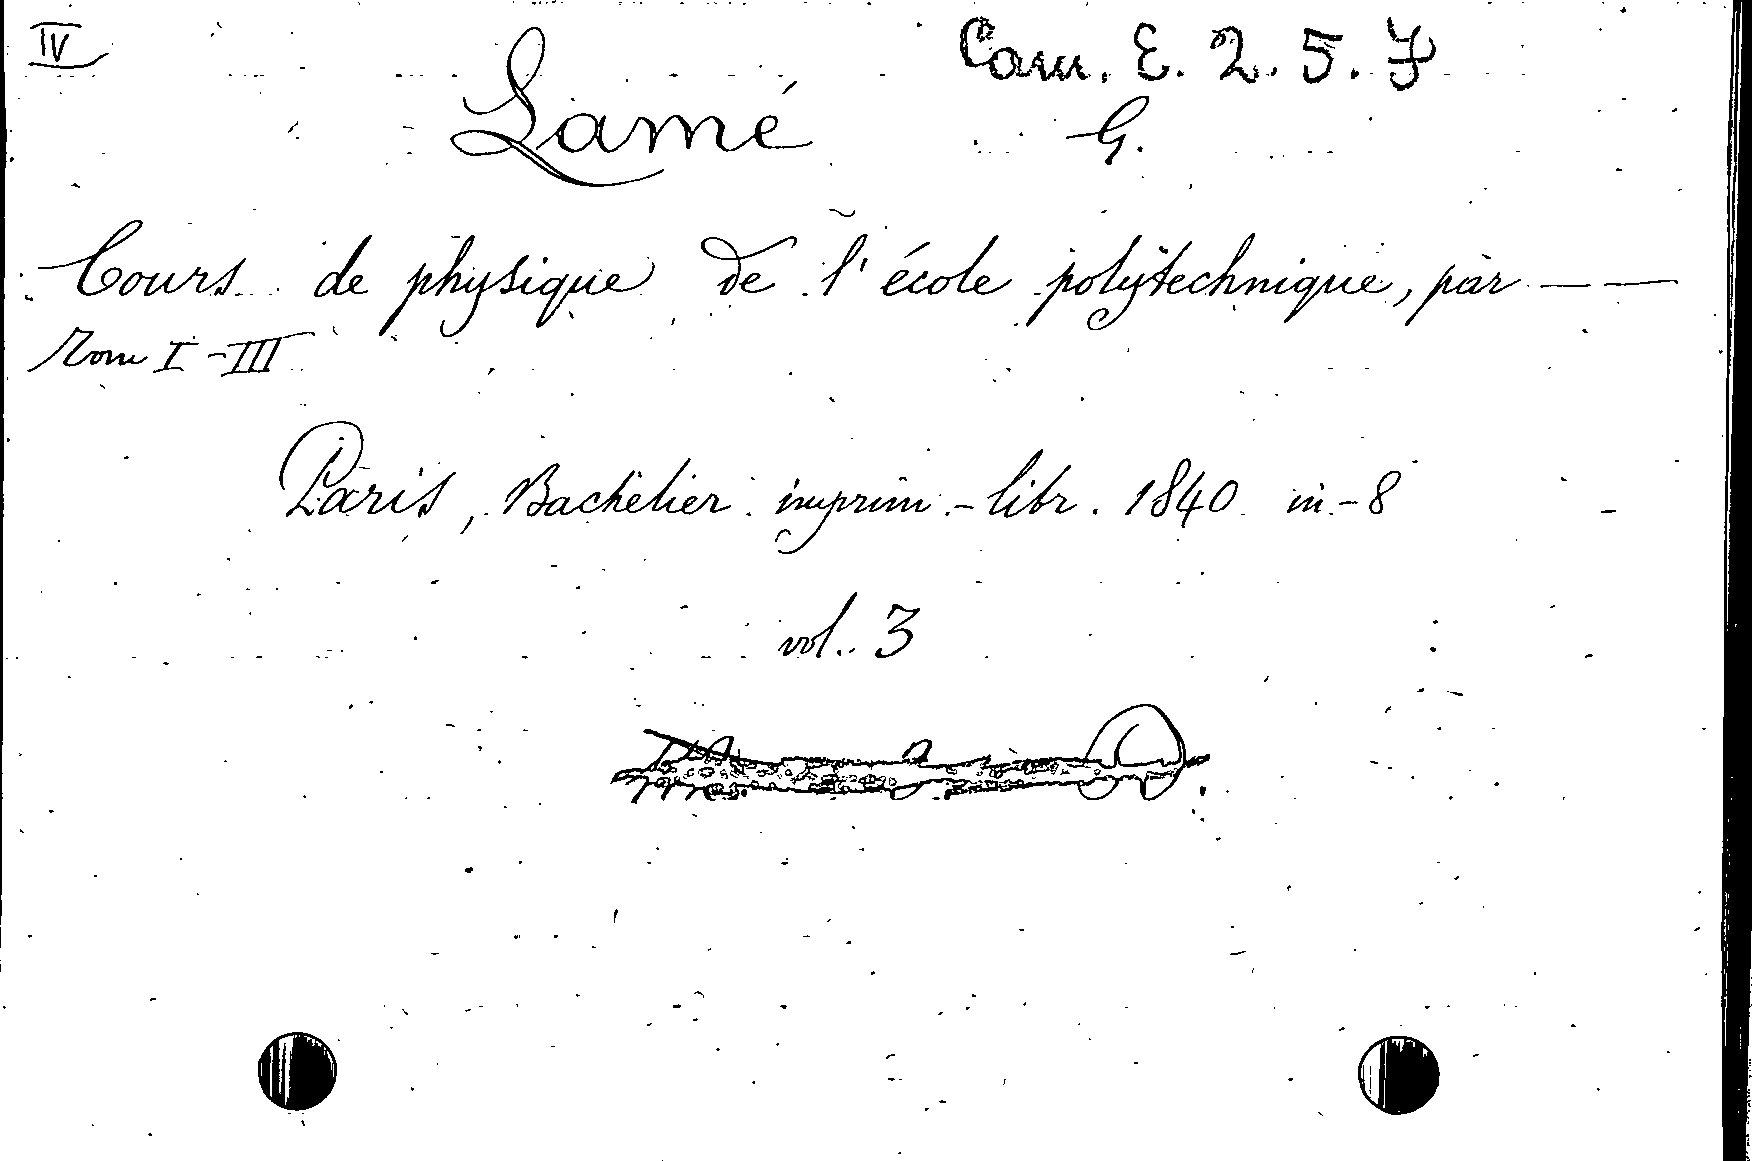 IV
Cam. E. 2. 5. 7
Lamé G.
Cours de physique de l'école polytechnique, par — —
Tom I - III
Paris, Bachelier imprim - libr. 1840 in - 8
vol. 3